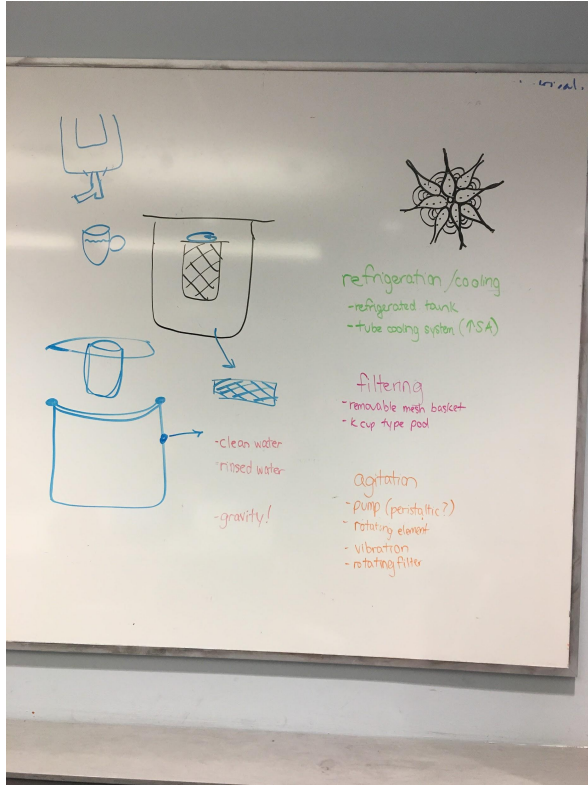 refrigeration/cooling
-refrigerated tank
-tube cooling system (↑SA)
filtering
-removable mesh basket
-k cup type pod
-clean water
-rinsed water
-gravity!
agitation
-pump (peristaltic?)
-rotating element
-vibration
-rotating filter